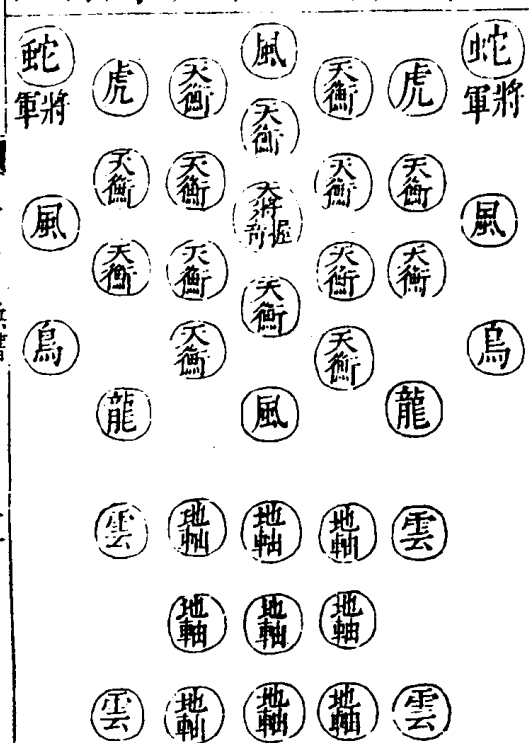 蛇 虎 天衡 風 天衡 虎 蛇
將軍 天衡 將軍
天衡 天衡 大將握奇 天衡 天衡
風 風
天衡 天衡 天衡 天衡 天衡
鳥 天衡 天衡 鳥
龍 風 龍
雲 地軸 地軸 地軸 雲
地軸 地軸 地軸
雲 地軸 地軸 地軸 雲